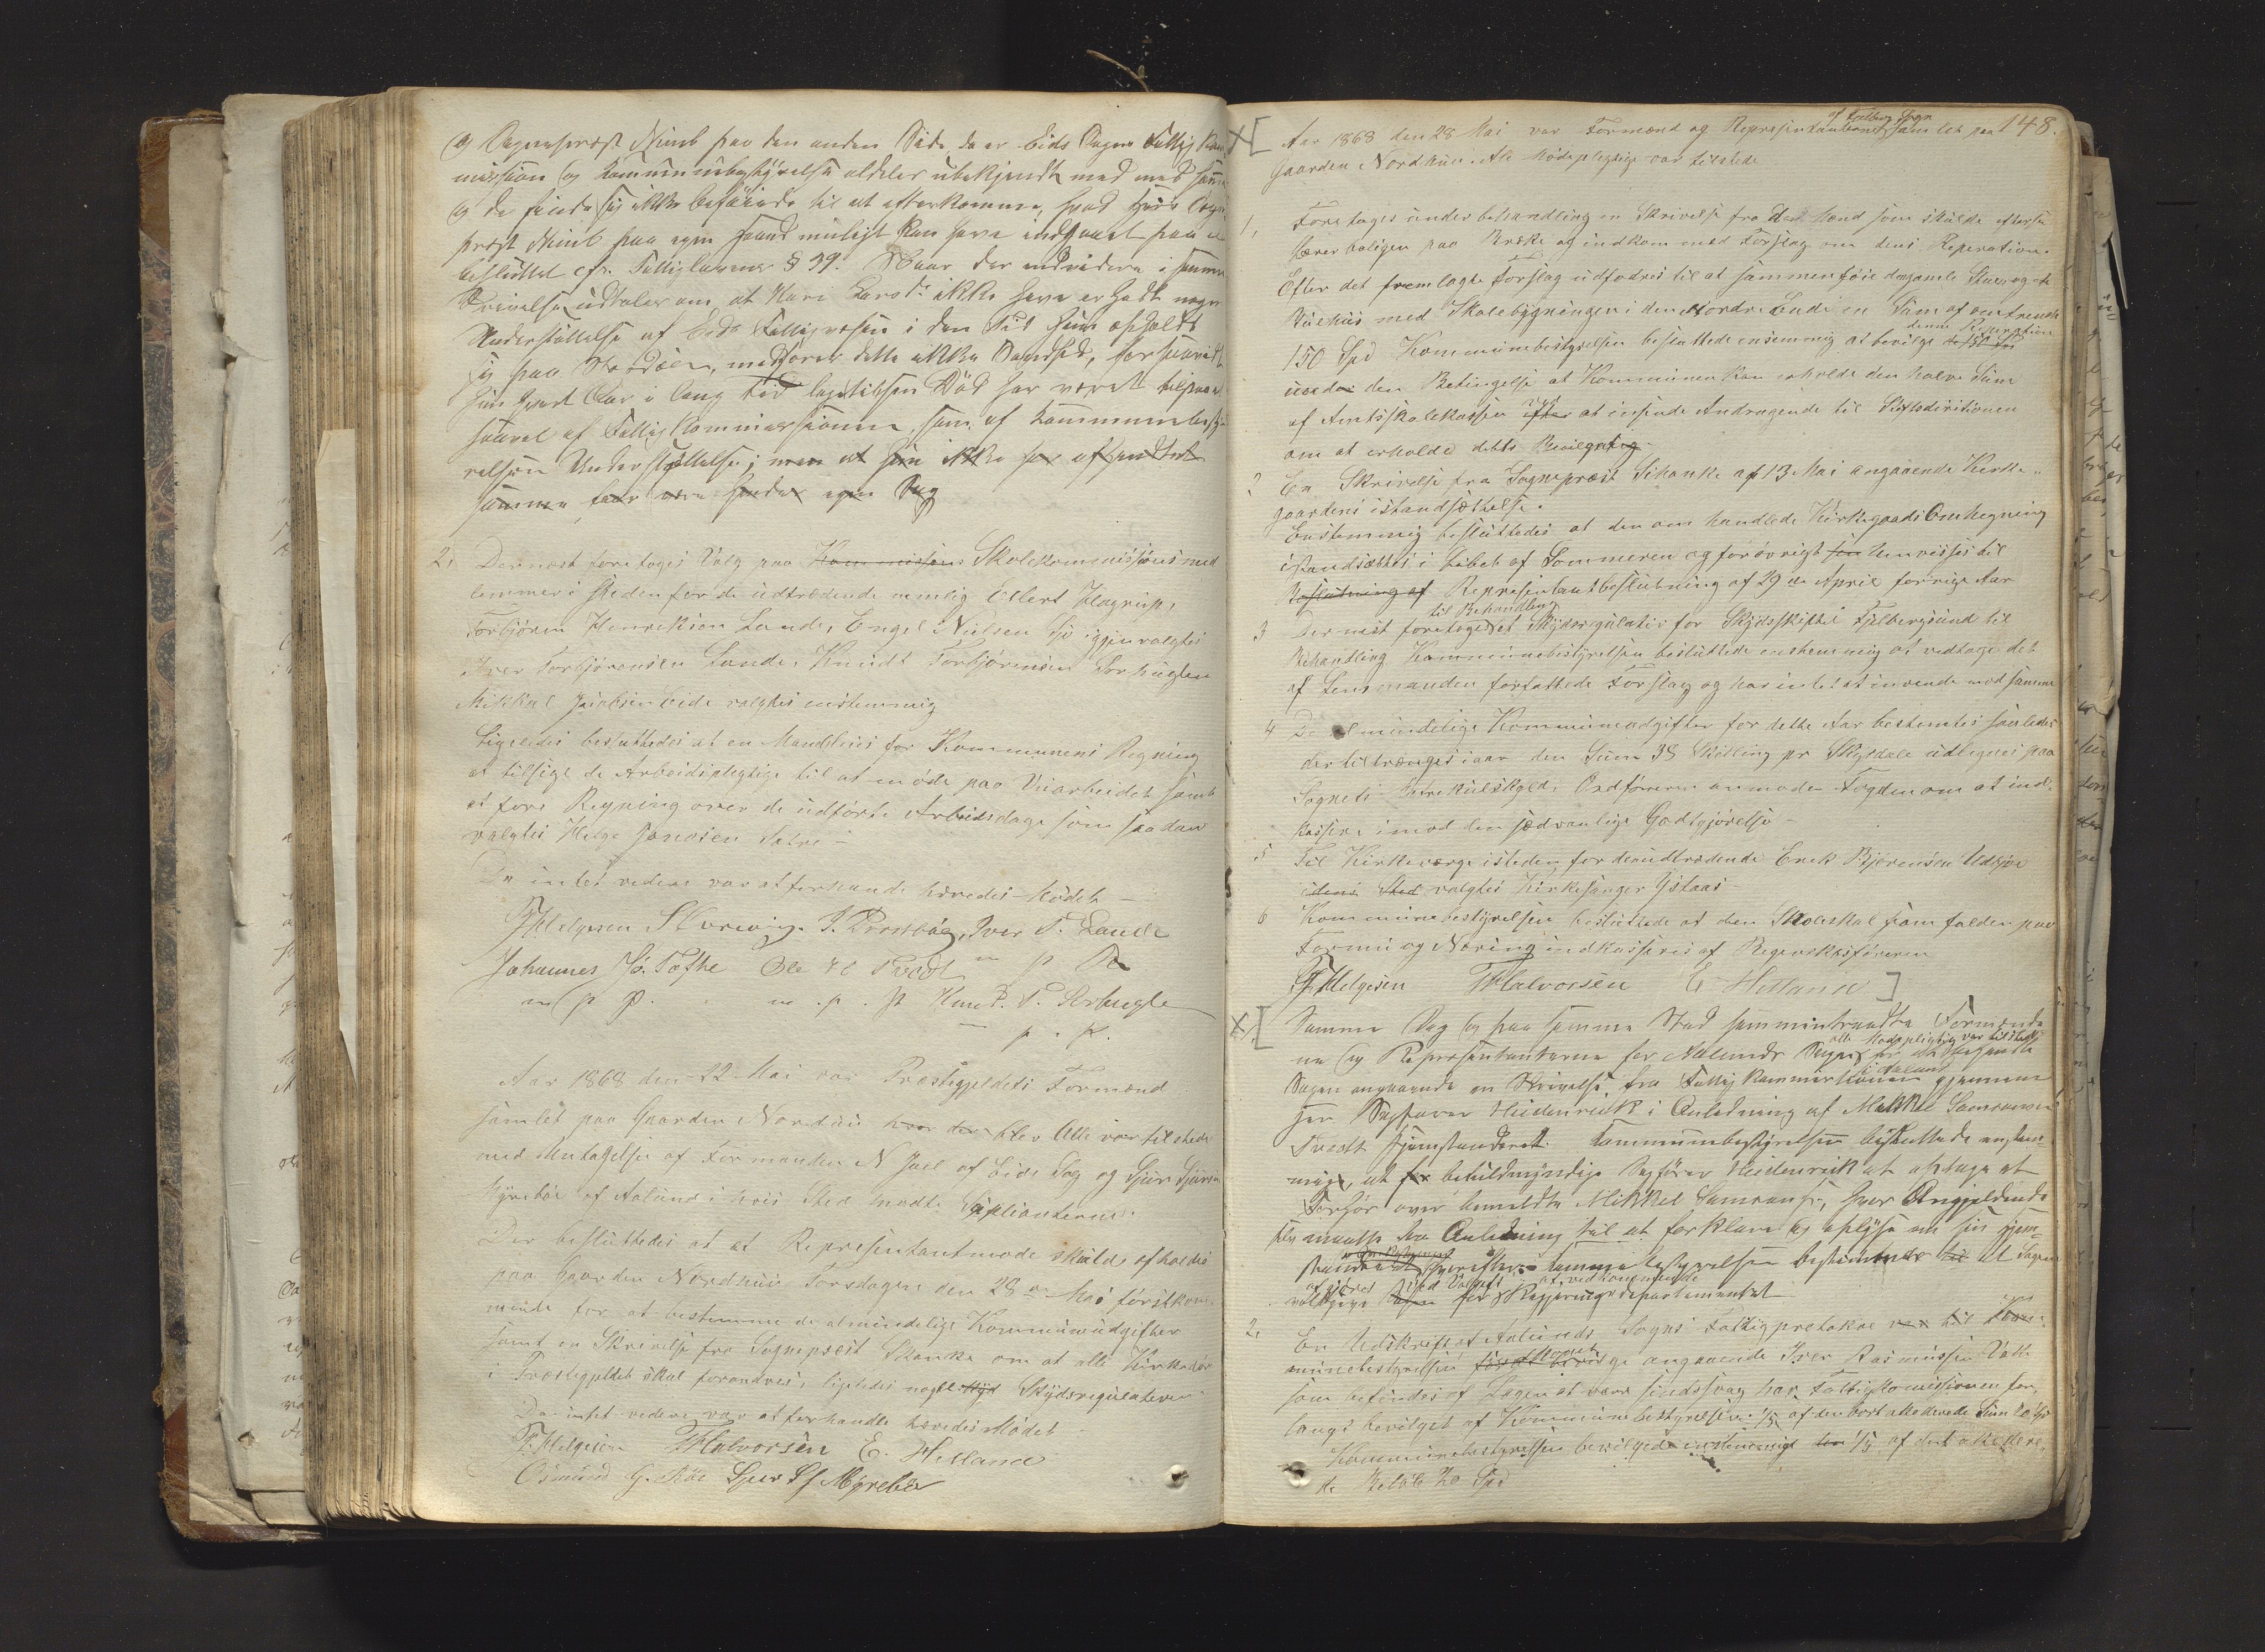 og Sogneprest Nimb paa den anden Side, da er Eids Sogns Fattigkom
mission og Kommunebestyrelse aldeles ubekjendt med med samme
og de finde sig ikke beføiede til at efterkomme, hvad Herr Sogne
præst Nimb paa egen Haand muligt kan have indgaaet paa el
besluttet cfr. Fattiglovens § 39. Naar der endvidere i samme
Skrivelse udtales om at Kari Larsd. ikke have erholdt nogen
Understøttelse af Eids Fattigvæsen i den Tid hun opholdt
sig paa, medfører dette ikke Sandhed, forsaavidt
hun hvert Aar i lang tid har været tilstaaet
saavel af Fattigkommissionen, som af Kommunebesty
relsen Understøttelse; men at hun ikke har afhændtet
samme faar være hendes egen Sag
2, Dernæst foretoges Valg paa Kommissions Skolekommissionsmed
lemmer i Steden for de udtrædende nemlig Ellert Hagrup,
Torbjørn Henriksen Lande, Engel Nielsen igjenvalgtes
Iver Torbjørnsen Lande, Knudt Torbjørnsen Sørhuglen
Mikkal Jacobsen Eide valgtes enstemmig
Ligeledes besluttedes at en Mand for Kommunens Regning
at tilsige de Arbeidspligtige til at møde paa Veiarbeidet samt
at føre Regning over de udførte Arbeidsdage som saadan
valgtes Helge Janasen Sætre –
Da intet videre var at forhandle hævedes Mødet –
T Helgesen S. P. Iver T. Lande
Johannes Jö. Tofthe Ole m p p
m p p. m . p . p Knud T. Sørhugle
– p . p.
Aar 1868 den 22 Mai var Præstegjeldets Formænd
samlet paa Gaarden Nordhuus hvor der blev Alle var tilstede
med Undtagelse af Formanden N Hoel af Eids Sog og Sjur Sjursen
Myrebøe af Aalund i hvis Sted mødte Suplianterne.
Der besluttedes at et Representantmøde skulde afholdes
paa Gaarden Nordhuus Torsdagen den 28de Mai førstkom
mende for at bestemme de almindelige Kommuneudgifter
samt en Skrivelse fra Sognepræst Skanke om at alle Kirkedør
i Præstegjeldet skal forandres, ligeledes nogle skyd Skydsregulativer
Da intet videre var at forhandle hævedes Mødet
T. Helgesen T Halvorsen E. Helland
Osmund G. Sjur Sj Myrebø
148.
af Fjelberg Sogn
Aar 1868 den 28 Mai var Formænd og Representanterne samlet paa
Gaarden Nordhuus. Alle Mødepligtige var tilstede
1, Foretoges under behandling en Skrivelse fra de Mænd som skulde efterse
Lærerboligen paa og indkom med Forslag om dens Reperation.
Efter det fremlagte Forslag udfodres til at sammenføie det gamle Stue og
med Skolebygningen i den Nordre Ende en Sum af omtrent
denne Reperation
150 Spd Kommunebestyrelsen besluttede ensemmig at bevilge de 150 Spd
under den Betingelse at Kommunen kan erholde den halve Sum
ved
af Amtsskolekassen efter at insende Andragende til Stiftsdiritionen
om at erholde dette Bevilgning –
2 En Skrivelse fra Sognepræst Skanke af 13 Mai angaaende Kirke-
gaardens istandsættelse.
Enstemmig besluttedes at den om handlede Kirkegaards Omhegning
istandsættes i Løbet af Sommeren og forøvrigt henvises til
Beslutning af Representantbeslutning af 29de April forrige Aar
til Behandling
3 Dernæst foretoges et Skydsregulativ for Skydsskiftet Fjelbergsund til
Behandling Kommunebestyrelsen besluttede enstemmig at vedtage det
af Lensmanden forfattede Forslag og har intet at invende mod samme
4 De almindelige Kommuneudgifter for dette Aar bestemtes saaledes
der tiltrænges i aar den Sum 38 Skilling pr Skyldale udlignes paa
Sognets Matrekulskyld. Ordføreren anmoder Fogden om at ind
kassere imod den sædvanlige Godtgjørelse –
5 Til Kirkeværge isteden for den udtrædende Erek Bjørnsen
idens Sted valgtes Kirkesanger Ystaas –
6 Kommunebestyrelsen besluttede at den Skoleskat som falder paa
Formue og Næring indkasseres af Regnskabsføreren
T Helgesen T Halvorsen E. Helland
Samme Dag og paa samme Sted sammentraadte Formænde
alle Mødepligtige var tilstede
ne og Representanterne for Aalunds Sogn for at behandle
Sagen angaaende en Skrivelse fra Fattigkommissionen gjennem
Herr Sagfører Heidenrick i Anledning af Mikkel Samsonsen
Tvedt Hjemstavdret. Kommunebestyrelsen besluttede enstem
mige, at for befuldmyndige Sagfører Heidenrick at optage et
Forhør over anmeldte Mikkel Samsons., hvor Angjeldende
selv maatte har Anledning til at forklare og oplyse om sin hjem-
hvorefter Kommunebestyrelsen bestemte til at Sagen
afgjøres ved Valgets af vedkommende
for Regjeringsdepartementet
2, En Udskrift af Aalunds Sogns Fattigprotokol var til Kom
munebestyrelsen angaaende Iver Rasmussen
som befindes af Lægen at være sindssvag har Fattigkomissionen for
langt bevilget af Kommunebestyrelsen 1/5 af den bort akorderede Sum 20 Sp
Kommunebestyrelsen bevilgede enstemmigt 1/5 af det akordere
de Beløb 20 Spd